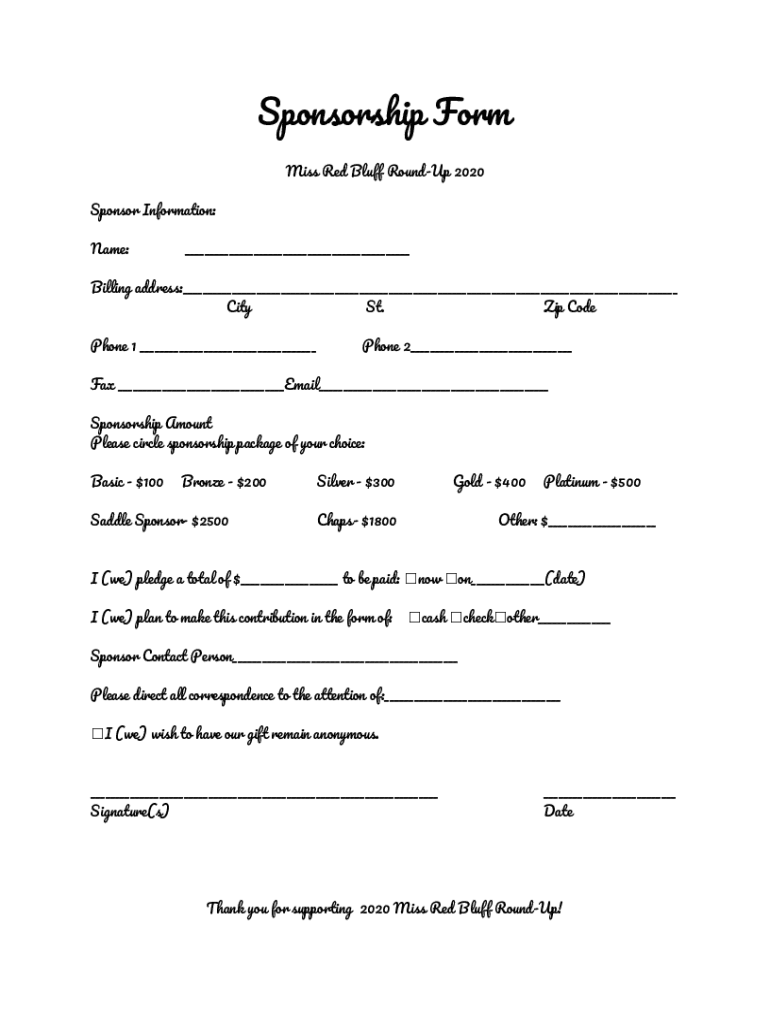 Sponsorship Form
Miss Red Bluff Round-Up 2020
Sponsor Information:
Name: ______________________________
Billing address:__________________________________________________________________
City St. Zip Code
Phone 1 ________________________ Phone 2______________________
Fax ______________________Email_______________________________
Sponsorship Amount
Please circle sponsorship package of your choice:
Basic - $100 Bronze - $200 Silver - $300 Gold - $400 Platinum - $500
Saddle Sponsor- $2500 Chaps- $1800 Other: $______________
I (we) pledge a total of $_____________ to be paid: ☐now ☐on__________(date)
I (we) plan to make this contribution in the form of: ☐cash ☐check☐other__________
Sponsor Contact Person______________________________
Please direct all correspondence to the attention of:________________________
☐I (we) wish to have our gift remain anonymous.
______________________________________________ __________________
Signature(s) Date
Thank you for supporting 2020 Miss Red Bluff Round-Up!